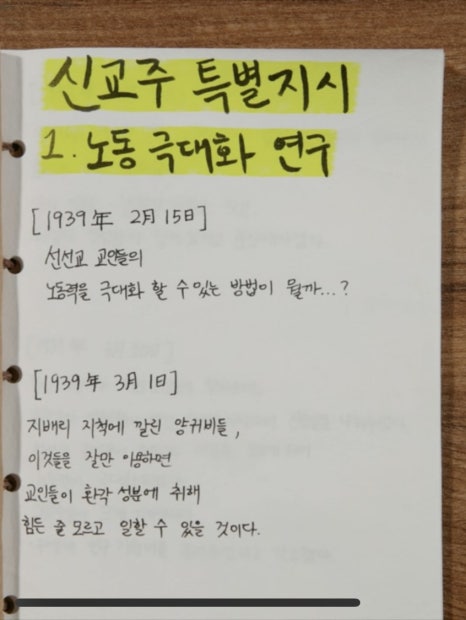 신교주 특별지시
1. 노동 극대화 연구
[1939年 2月 15日]
선선교 교인들의
노동력을 극대화 할 수 있는 방법이 뭘까...?
[1939年 3月 1日]
지배리 지척에 깔린 양귀비들,
이것들을 잘만 이용하면
교인들이 환각 성분에 취해
힘든 줄 모르고 일할 수 있을 것이다.